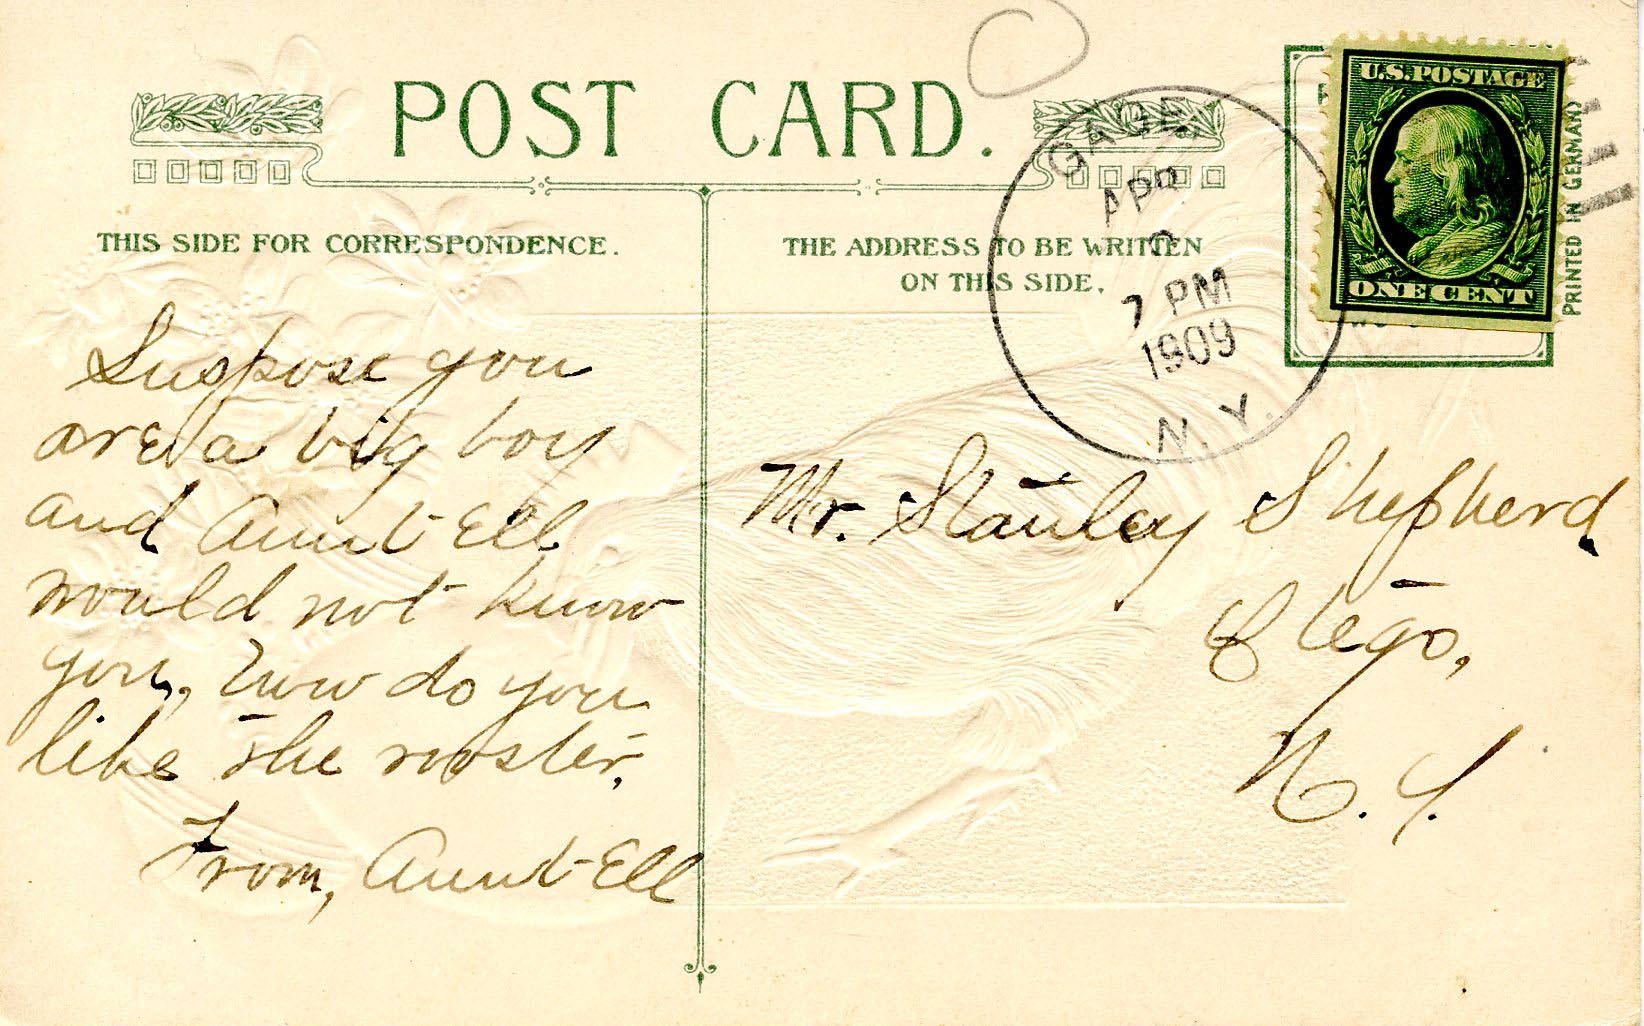 POST CARD.
THIS SIDE FOR CORRESPONDENCE.
THE ADDRESS TO BE WRITTEN
ON THIS SIDE.
GAGE,
APR
7 PM
1909
N.Y.
U.S. POSTAGE
ONE CENT
PRINTED IN GERMANY
Suppose you
are a big boy
and Aunt Ell
would not know
you, how do you
like the rooster,
From, Aunt Ell
Mr. Stanley Shepherd,
Otego,
N. Y.